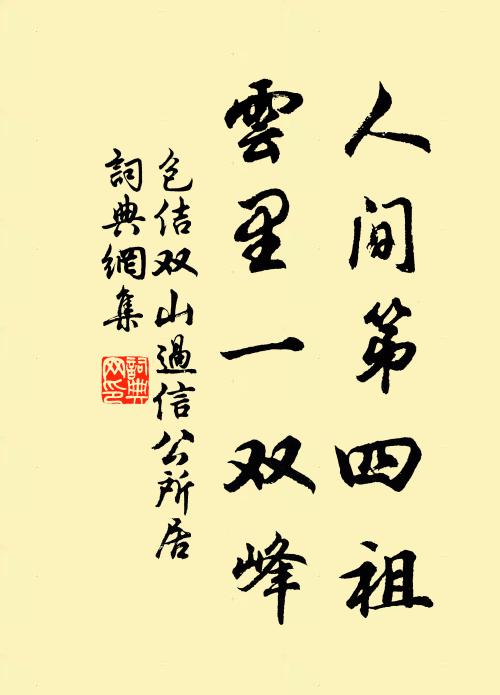 人间第四祖
雲里一双峰
包佶双山過信公所居
詞典網集
詞典网印